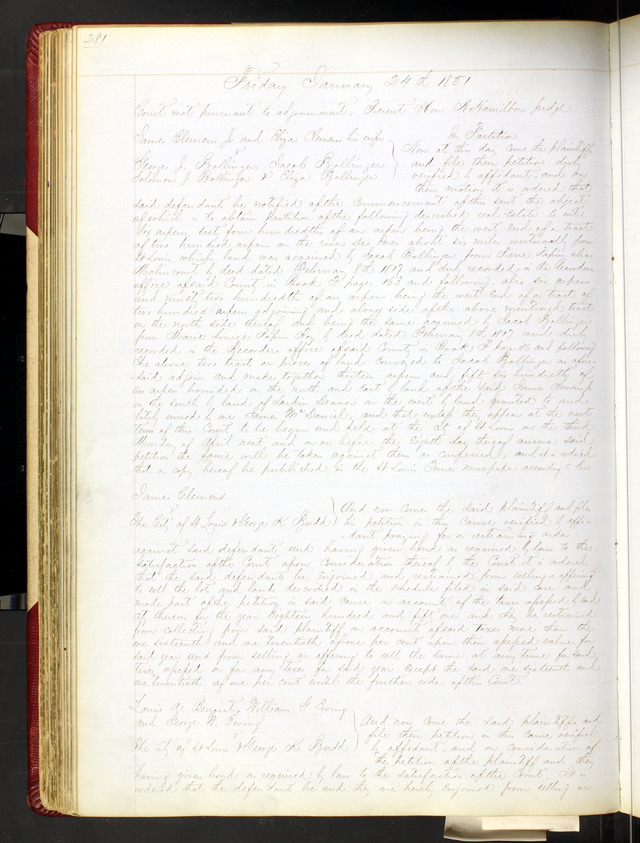 281
Friday January 24th 1851
Court met pursuant to adjournment. Present Hon A Hamilton Judge
James Clemens Jr and Eliza Clemens his wife
In Partition
George J. Bollinger, Jacob Bollinger
Solomon J. Bollinger & Eliza Bollinger
Now at this day come the plaintiffs
and file their petition duly
verified by affidavit, and on
their motion it is ordered that
said defendants be notified of the commencement of this suit the object
of which is to obtain partition of the following described real estate to wit:
Six arpens and four hundredths of an arpen being the west end of a tract
of two hundred arpens on the river des Peres about six miles westwardly from
St Louis which land was acquired by Jacob Bollinger from Pierre
by deed dated February 8th 1817 and duly recorded in the Recorders
office of said County in Book F page 163 and following also six arpens
and ninety two hundredths of an arpen being the west end of a tract of
two hundred arpens adjoining and along side of the above mentioned tract
on the north side thereof and being the same acquired by Jacob Bollinger
from Marie Louise by deed dated February 8th 1817 and duly
recorded in the Recorders office of said County in Book F page and following
the above two tracts or pieces of land conveyed to Jacob Bollinger as afore-
said adjoin and make together thirteen arpens and fifty six hundredths of
an arpen bounded on the north and east by land of the said James Clemens Jr
on the south by land of Larkin Deaver on the west by land granted to and
lately owned by one James McDaniel, and that unless they appear at the next
term of this Court to be begun and held at the City of St Louis on the third
Monday of April next and on or before the Eighth day thereof answer said
petition the same will be taken against them as confessed, and it is ordered
that a copy hereof be published in the St Louis Times newspaper according to law
James Clemens
vs
The City of St Louis & George K. Budd
And now come the said plaintiff and files
his petition in this cause verified by affi-
davit praying for a restraining order
against said defendants and having given bond as required by law to the
satisfaction of the Court upon consideration thereof by the Court it is ordered
that the said defendants be enjoined and restrained from selling or offering
to sell the lots and lands described in the schedule filed in said cause and
made part of the petition in said cause on account of the taxes assessed
thereon for the year eighteen hundred and fifty one and they be restrained
from collecting from said plaintiff on account of said taxes more than the
one sixteenth and one twentieth of one per cent upon their assessed value for
said year and from selling or offering to sell the same at any time for said
taxes assessed or for any taxes for said year except the said one sixteenth and
one twentieth of one per cent until the further order of this Court
Louis A. Benoist, William G Ewing
and George W. Ewing
vs
The City of St Louis & George K. Budd
And now come the said plaintiffs and
file their petition in this cause verified
by affidavit, and on consideration of
the petition of the plaintiff and they
having given bond as required by law to the satisfaction of the Court, It is
ordered that the defendants be and they are hereby enjoined from selling or